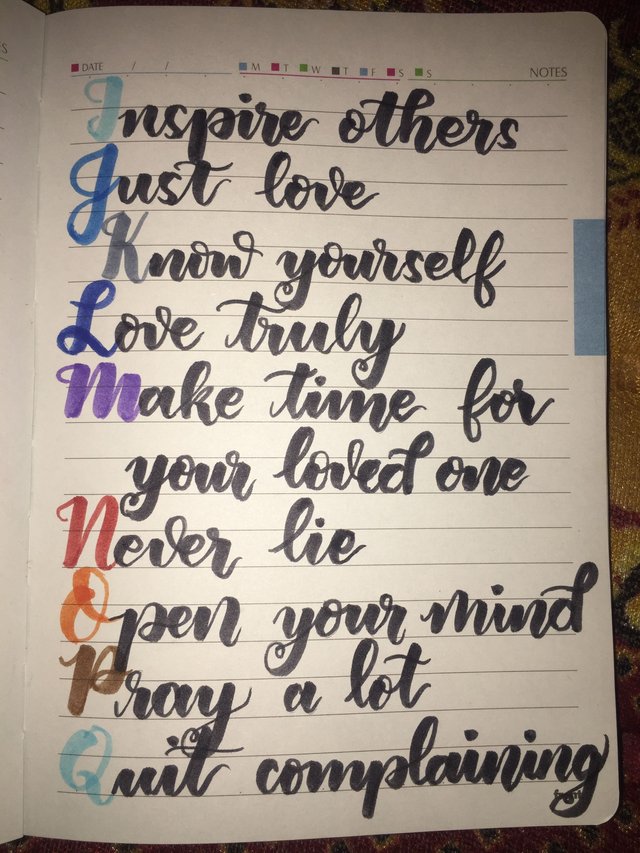 DATE / / M T W T F S S NOTES
Inspire others
Just love
Know yourself
Love truly
Make time for
your loved one
Never lie
Open your mind
Pray a lot
Quit complaining